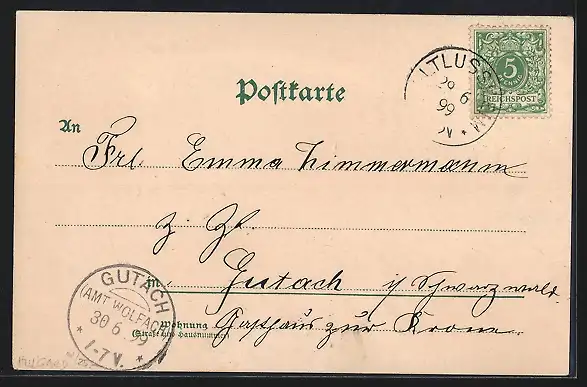 ALTLUSSHEIM
29 6
99
5
PFENNIG
REICHSPOST
Postkarte
An
Frl. Emma Zimmermann
z. Zt.
in Gutach i/ Schwarzwald
Wohnung Gasthaus zur Krone
(Straße und Hausnummer)
GUTACH
(AMT WOLFACH)
30 6 99
* 1-7 V. *